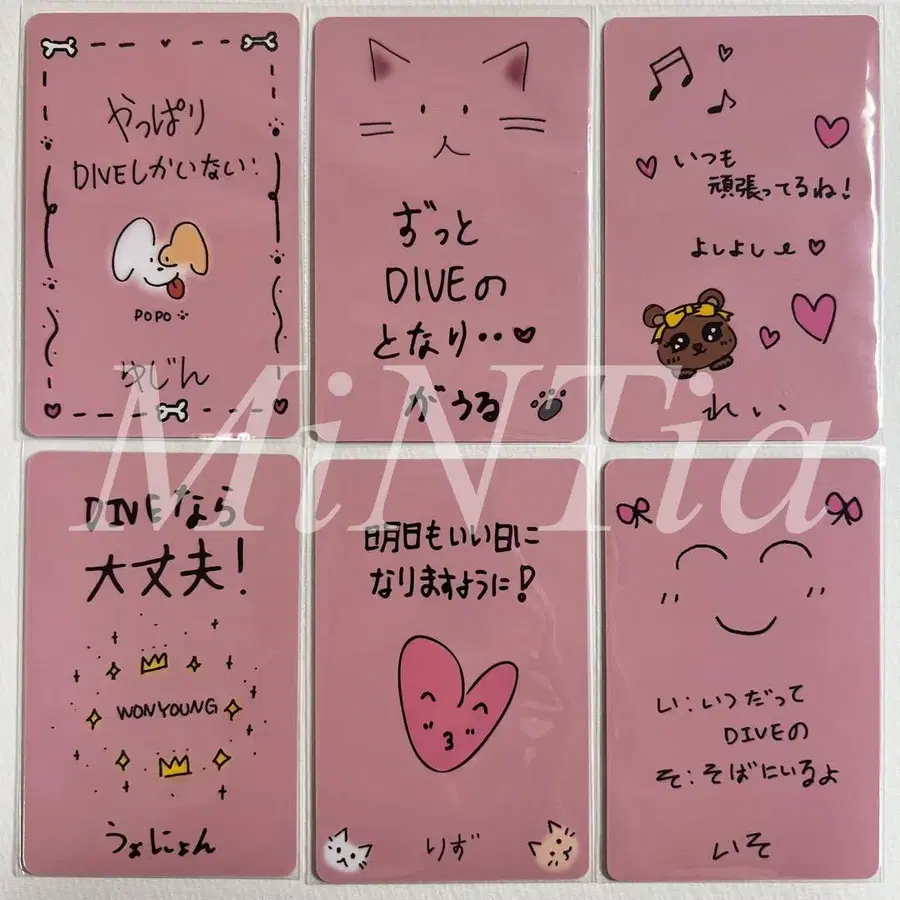 やっぱり
DIVEしかいない:
POPO
ゆじん
ずっと
DIVEの
となり・・♥
がうる
いつも
頑張ってるね!
よしよし
れい
DIVEなら
大丈夫!
WONYOUNG
うぉにょん
明日もいい日に
なりますように!
りず
い:いつだって
DIVEの
そ:そばにいるよ
いそ
MiNTia